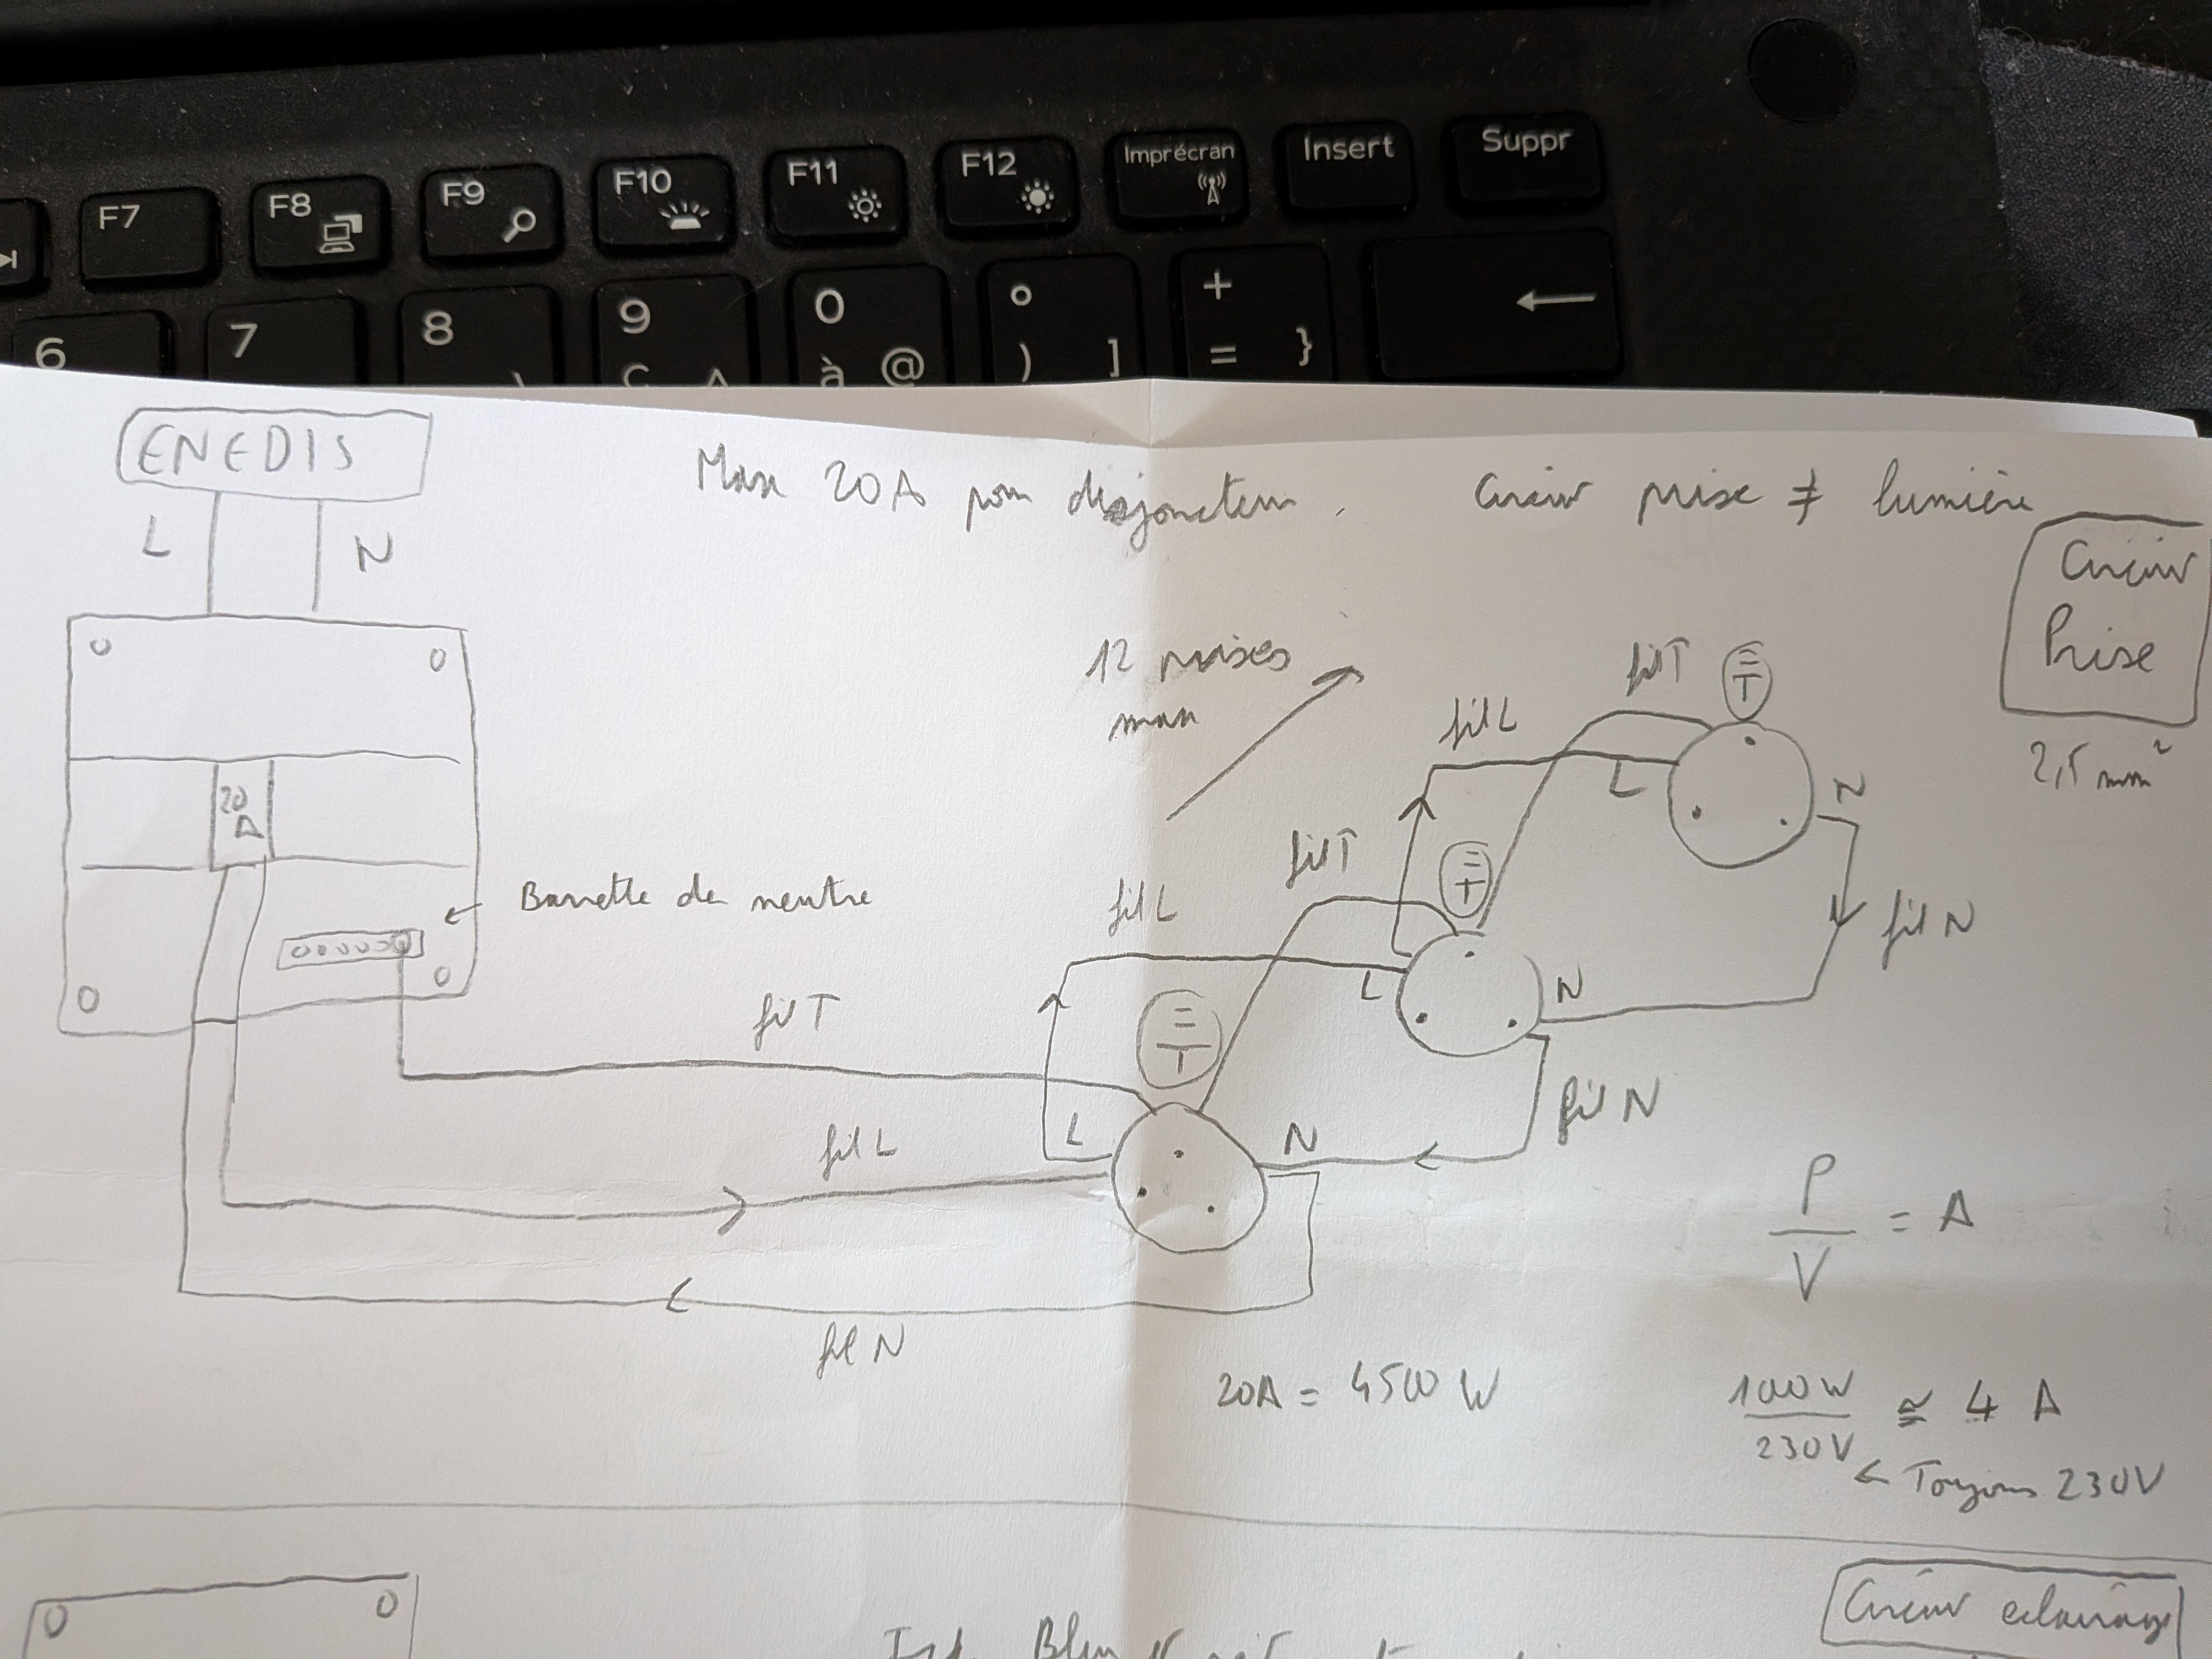 F7
F8
F9
F10
F11
F12
Imprécran
Insert
Suppr
6
7
8
9
0
°
+
←
ç ^
à @
) ]
= }
ENEDIS
L N
Max 20A pour disjoncteur. Circuit prise ≠ lumière
Circuit
Prise
2,5 mm²
12 prises
max
20
A
Barrette de neutre
fil T
fil L
L
N
fil T
fil L
L
N
fil N
T
T
T
fil T
fil L
L
N
fil N
fil N
P
V
= A
20A = 4500 W
100W
230V
≅ 4 A
← Toujours 230V
Circuit eclairage